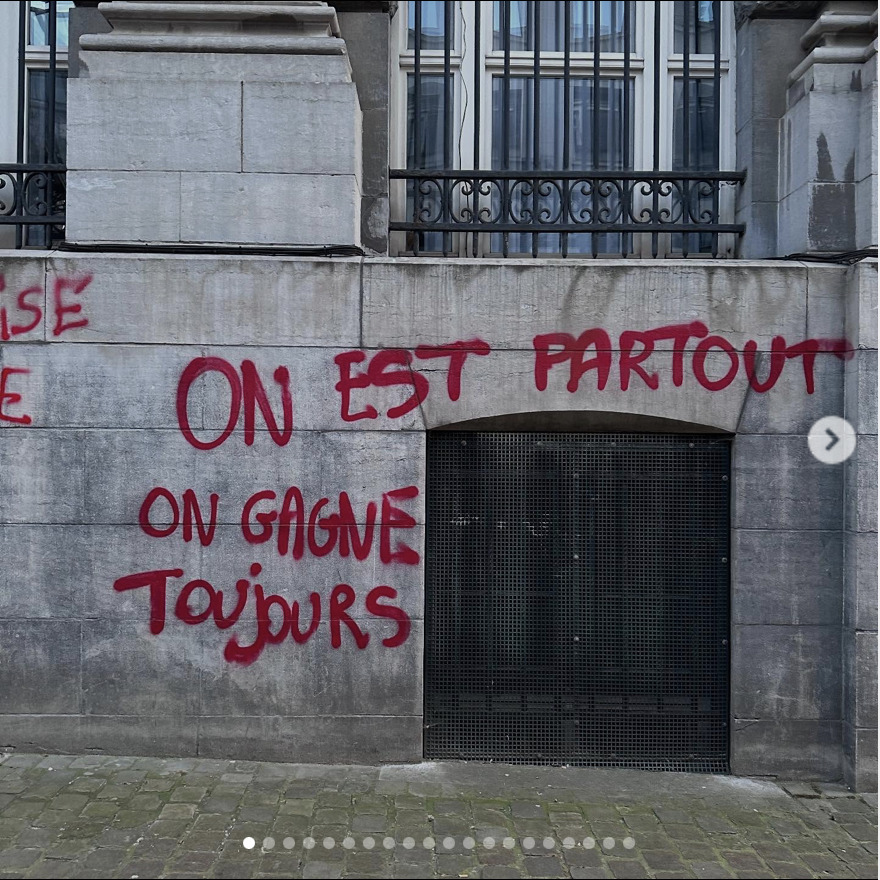 ON EST PARTOUT
ON GAGNE
TOUjOURS